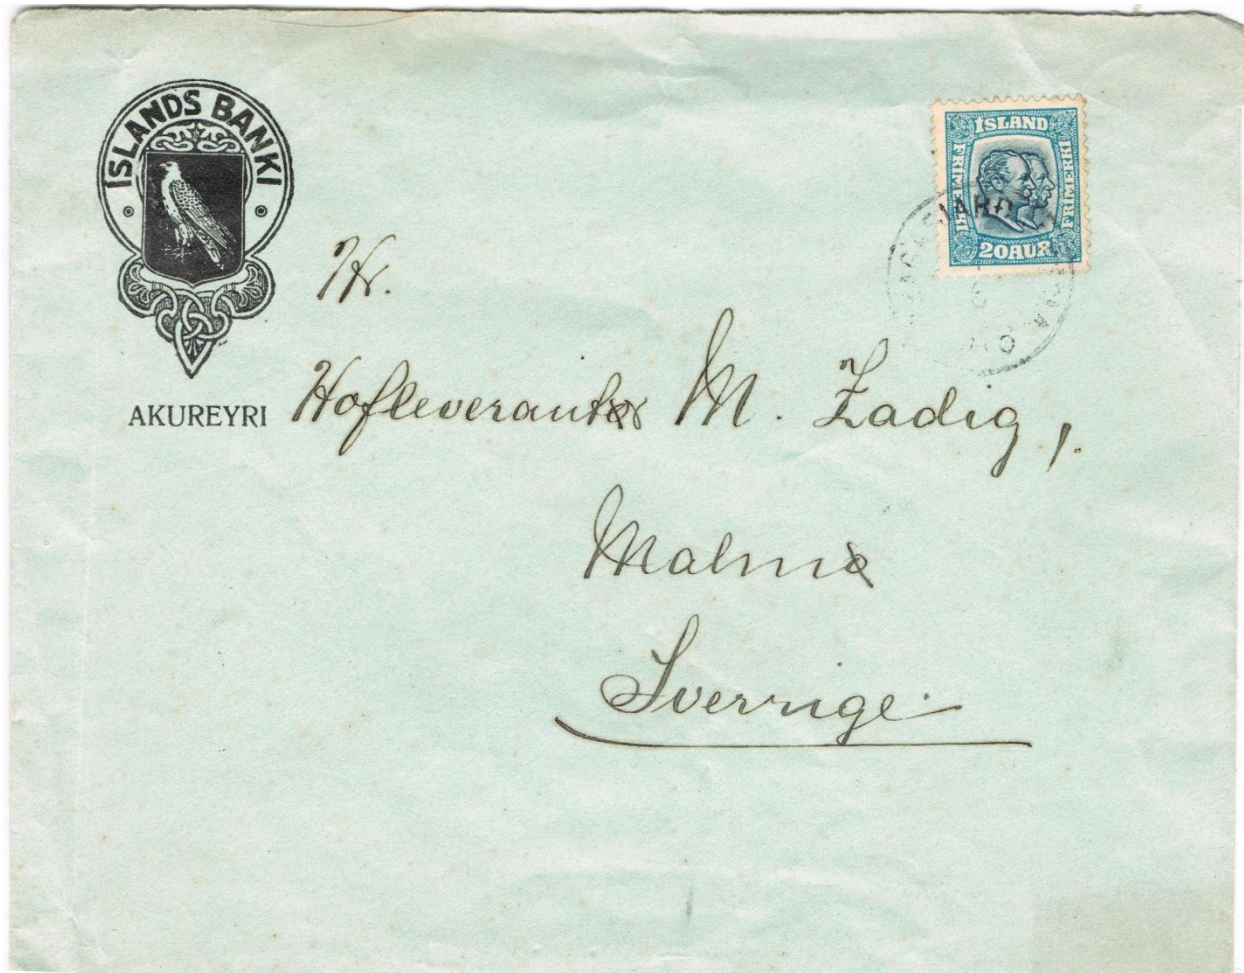 ÍSLANDS BANKI
AKUREYRI
ÍSLAND
FRIMERKI
FRIMERKI
20 AUR
Hr.
Hofleverantør M. Zadig,
Malmø
Sverrige